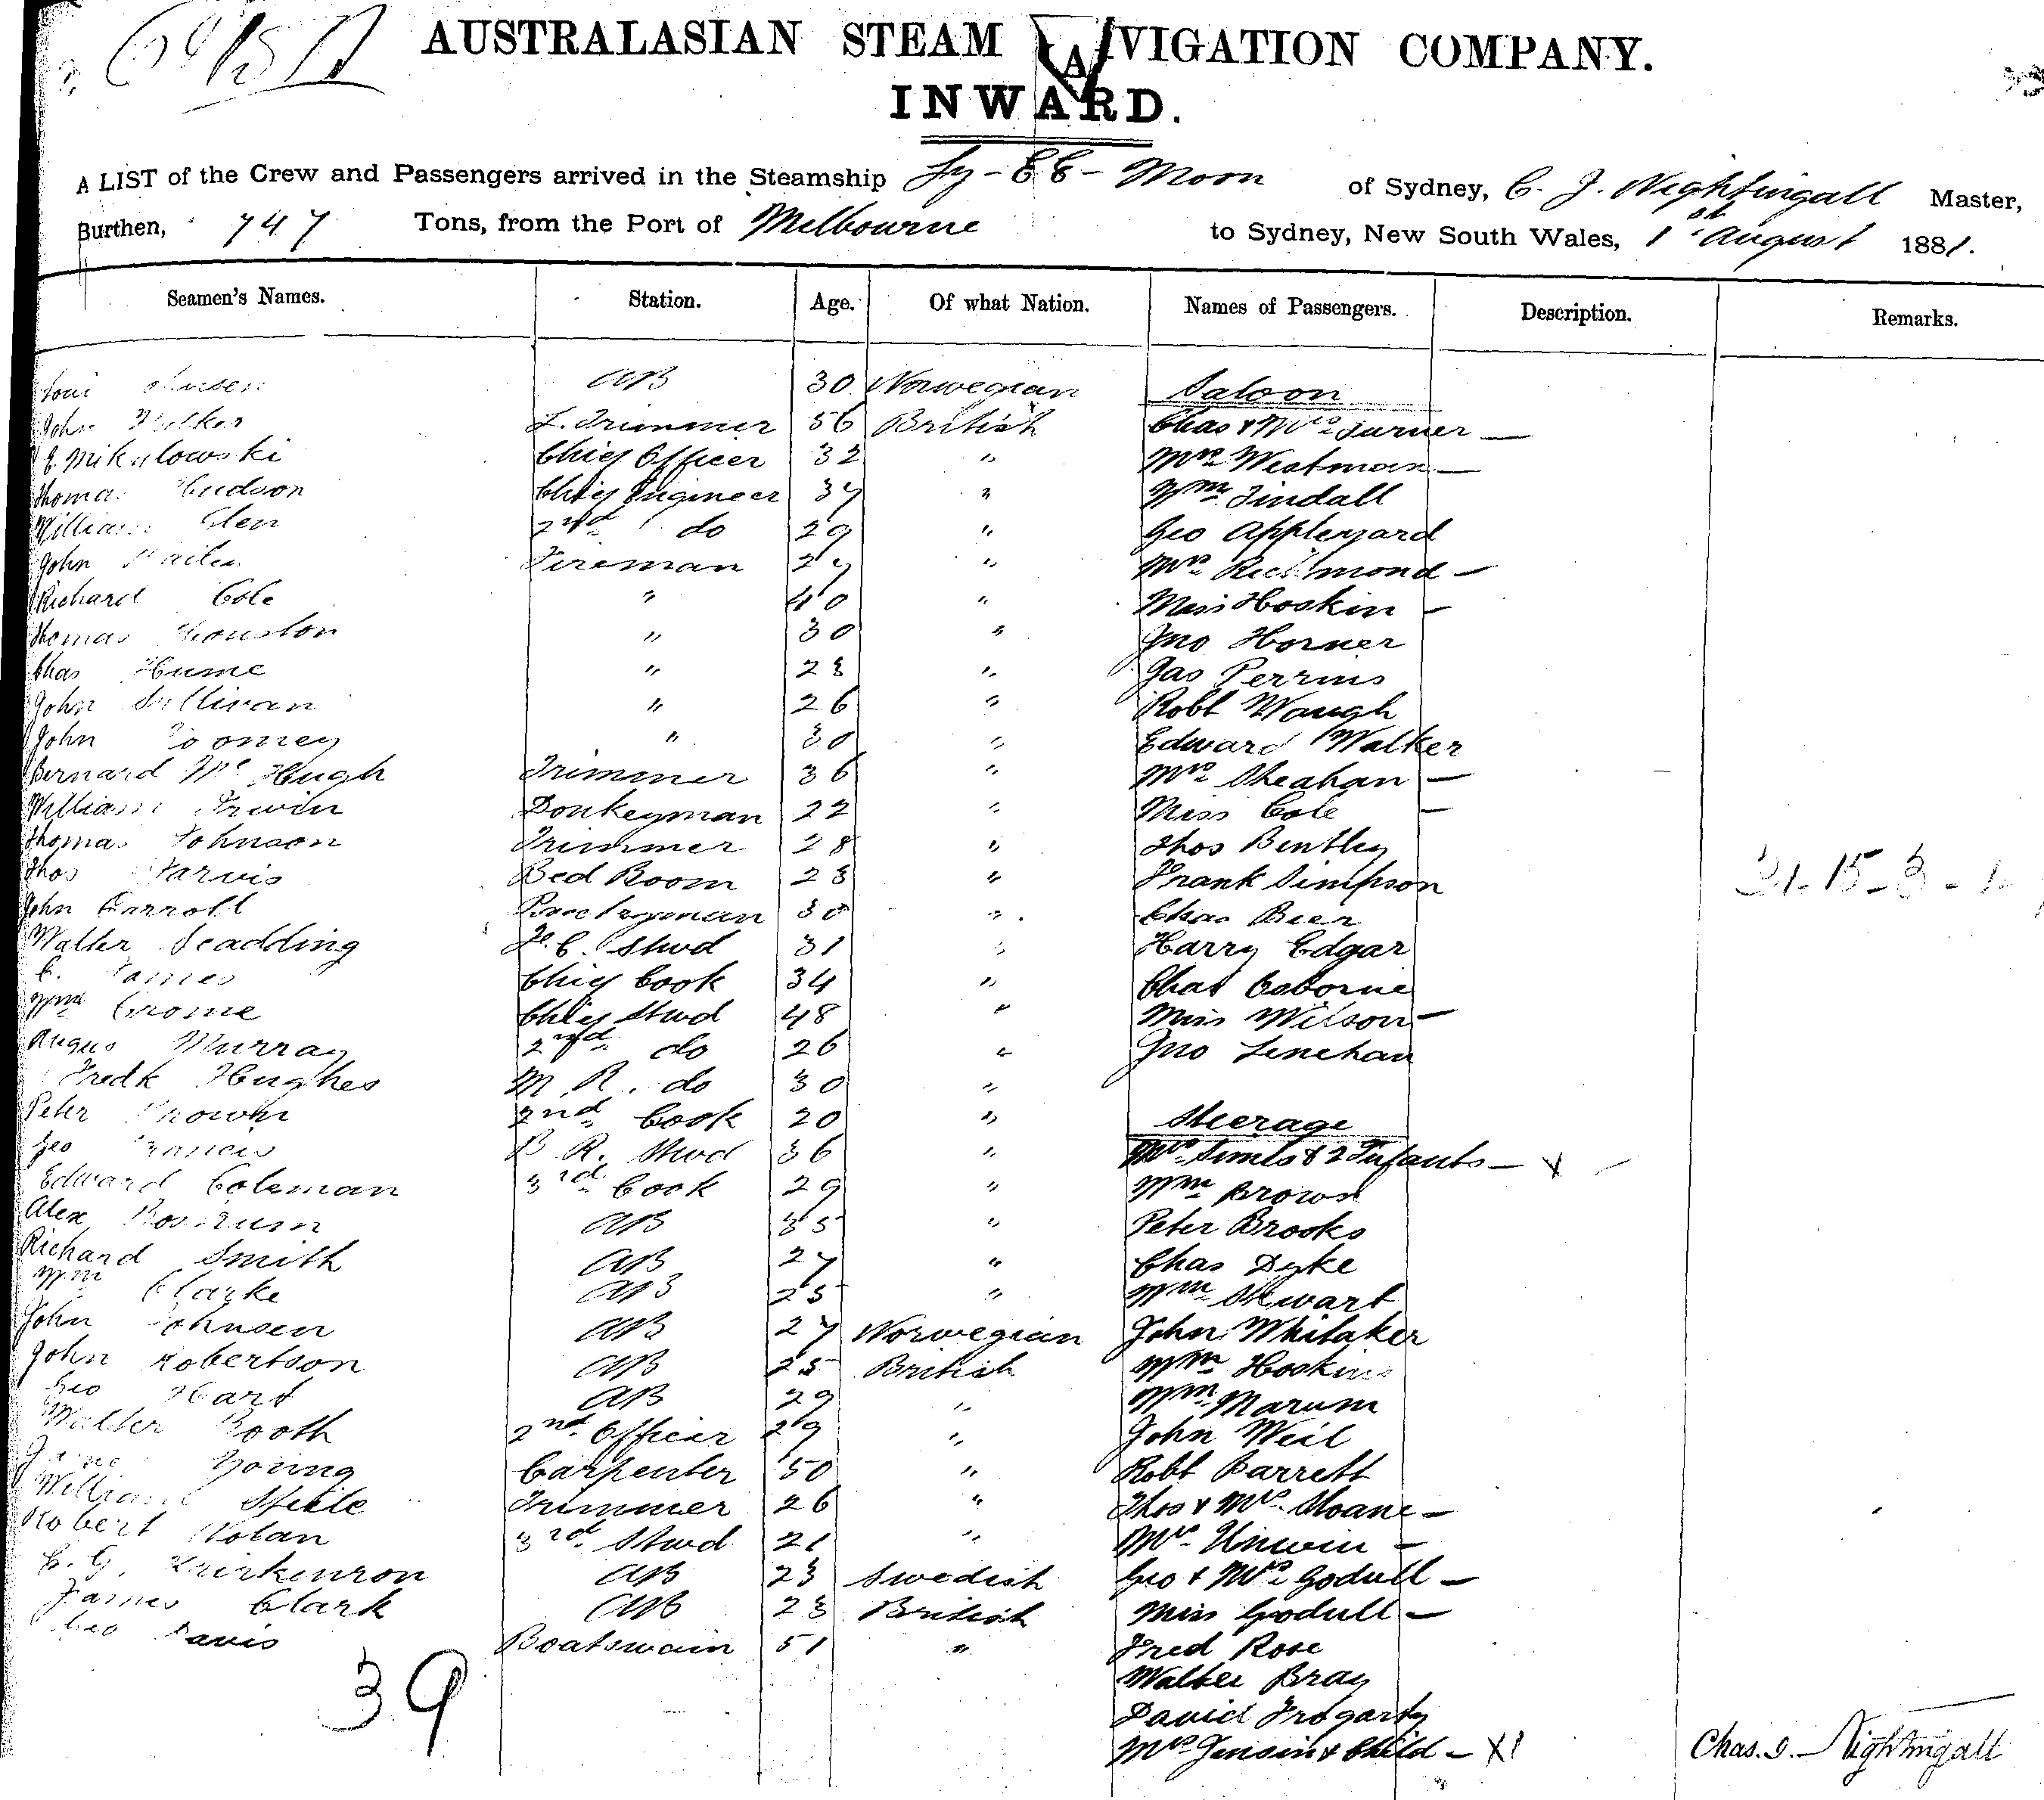 AUSTRALASIAN STEAM NAVIGATION COMPANY.
INWARD.
A LIST of the Crew and Passengers arrived in the Steamship Ly-EE-Moon of Sydney, C. J. Nightingall Master,
Burthen, 747 Tons, from the Port of Melbourne to Sydney, New South Wales, 1st August 1881.
Seamen's Names. Station. Age. Of what Nation. Names of Passengers. Description. Remarks.
AB 30 Norwegian Saloon
John L. Trimmer 56 British Chas & Mrs Turner —
Mikulowski Chief Officer 32 " Mrs Westman —
Thomas Hudson Chief Engineer 37 " Wm Tindall
William Glen 2nd do 29 " Geo Appleyard
John Fireman 27 " Mrs Richmond —
Richard Cole " 40 " Miss Hoskin —
Thomas Houston " 30 " Jno Horner
Chas Hume " 28 " Jas Perrins
John Sullivan " 26 " Robt Waugh
John Toomey " 30 " Edward Walker
Bernard Mc Hugh Trimmer 36 " Mrs Sheahan —
William Irwin Donkeyman 22 " Miss Cole —
Thomas Johnson Trimmer 28 " Thos Bentley
Thos Jarvis Bed Room 23 " Frank Simpson
John Carroll Pantryman 30 " Chas Beer
Walter Scadding F. C. Stwd 31 " Harry Edgar
C. James Chief Cook 34 " Chas Osborne
Wm Crome Chief Stwd 48 " Miss Wilson —
Angus Murray 2nd do 26 " Jno Lenehan
Fredk Hughes M. R. do 30 "
Peter Brown 2nd Cook 20 " Steerage
Geo Francis B. R. Stwd 36 " Mrs Simls & 2 Infants — x
Edward Coleman 3rd Cook 29 " Wm Brown
Alex AB 35 " Peter Brooks
Richard Smith AB 27 " Chas Dyke
Wm Clarke AB 25 " Wm Stewart
John Johnsen AB 27 Norwegian John Whitaker
John Robertson AB 25 British Wm Hoskins
Geo Hart AB 29 " Wm Marum
Walter Booth 2nd Officer 29 " John Weil
James Young Carpenter 50 " Robt Barrett
William Steele Trimmer 26 " Thos & Mrs Sloane —
Robert Nolan 3rd Stwd 21 " Mrs Unwin —
C. G. AB 23 Swedish Geo & Mrs Godull —
James Clark AB 23 British Miss Godull —
Geo Davis Boatswain 51 " Fred Rose
Walter Bray
39 David Frogarty
Mrs Jensin & Child — X1 Chas. J. Nightingall